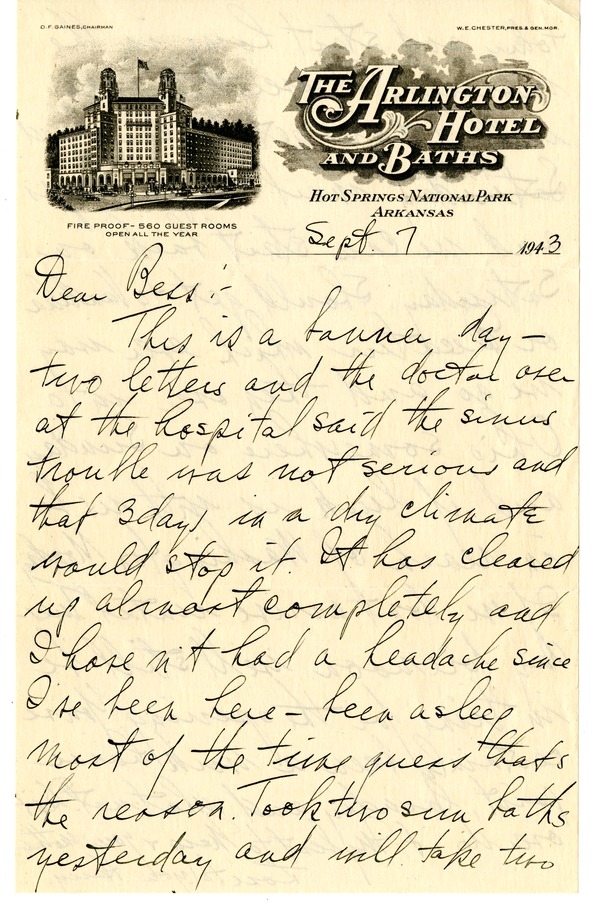 D.F. GAINES, CHAIRMAN
W.E. CHESTER, PRES. & GEN. MGR.
THE ARLINGTON
HOTEL
AND BATHS
HOT SPRINGS NATIONAL PARK
ARKANSAS
FIRE PROOF – 560 GUEST ROOMS
OPEN ALL THE YEAR
Sept. 7 1943
Dear Bess:-
This is a banner day –
two letters and the doctor over
at the hospital said the sinus
trouble was not serious and
that 3 days in a dry climate
would stop it. It has cleared
up almost completely and
I have n't had a headache since
I've been here – been asleep
most of the time guess that's
the reason. Took two sun baths
yesterday and will take two